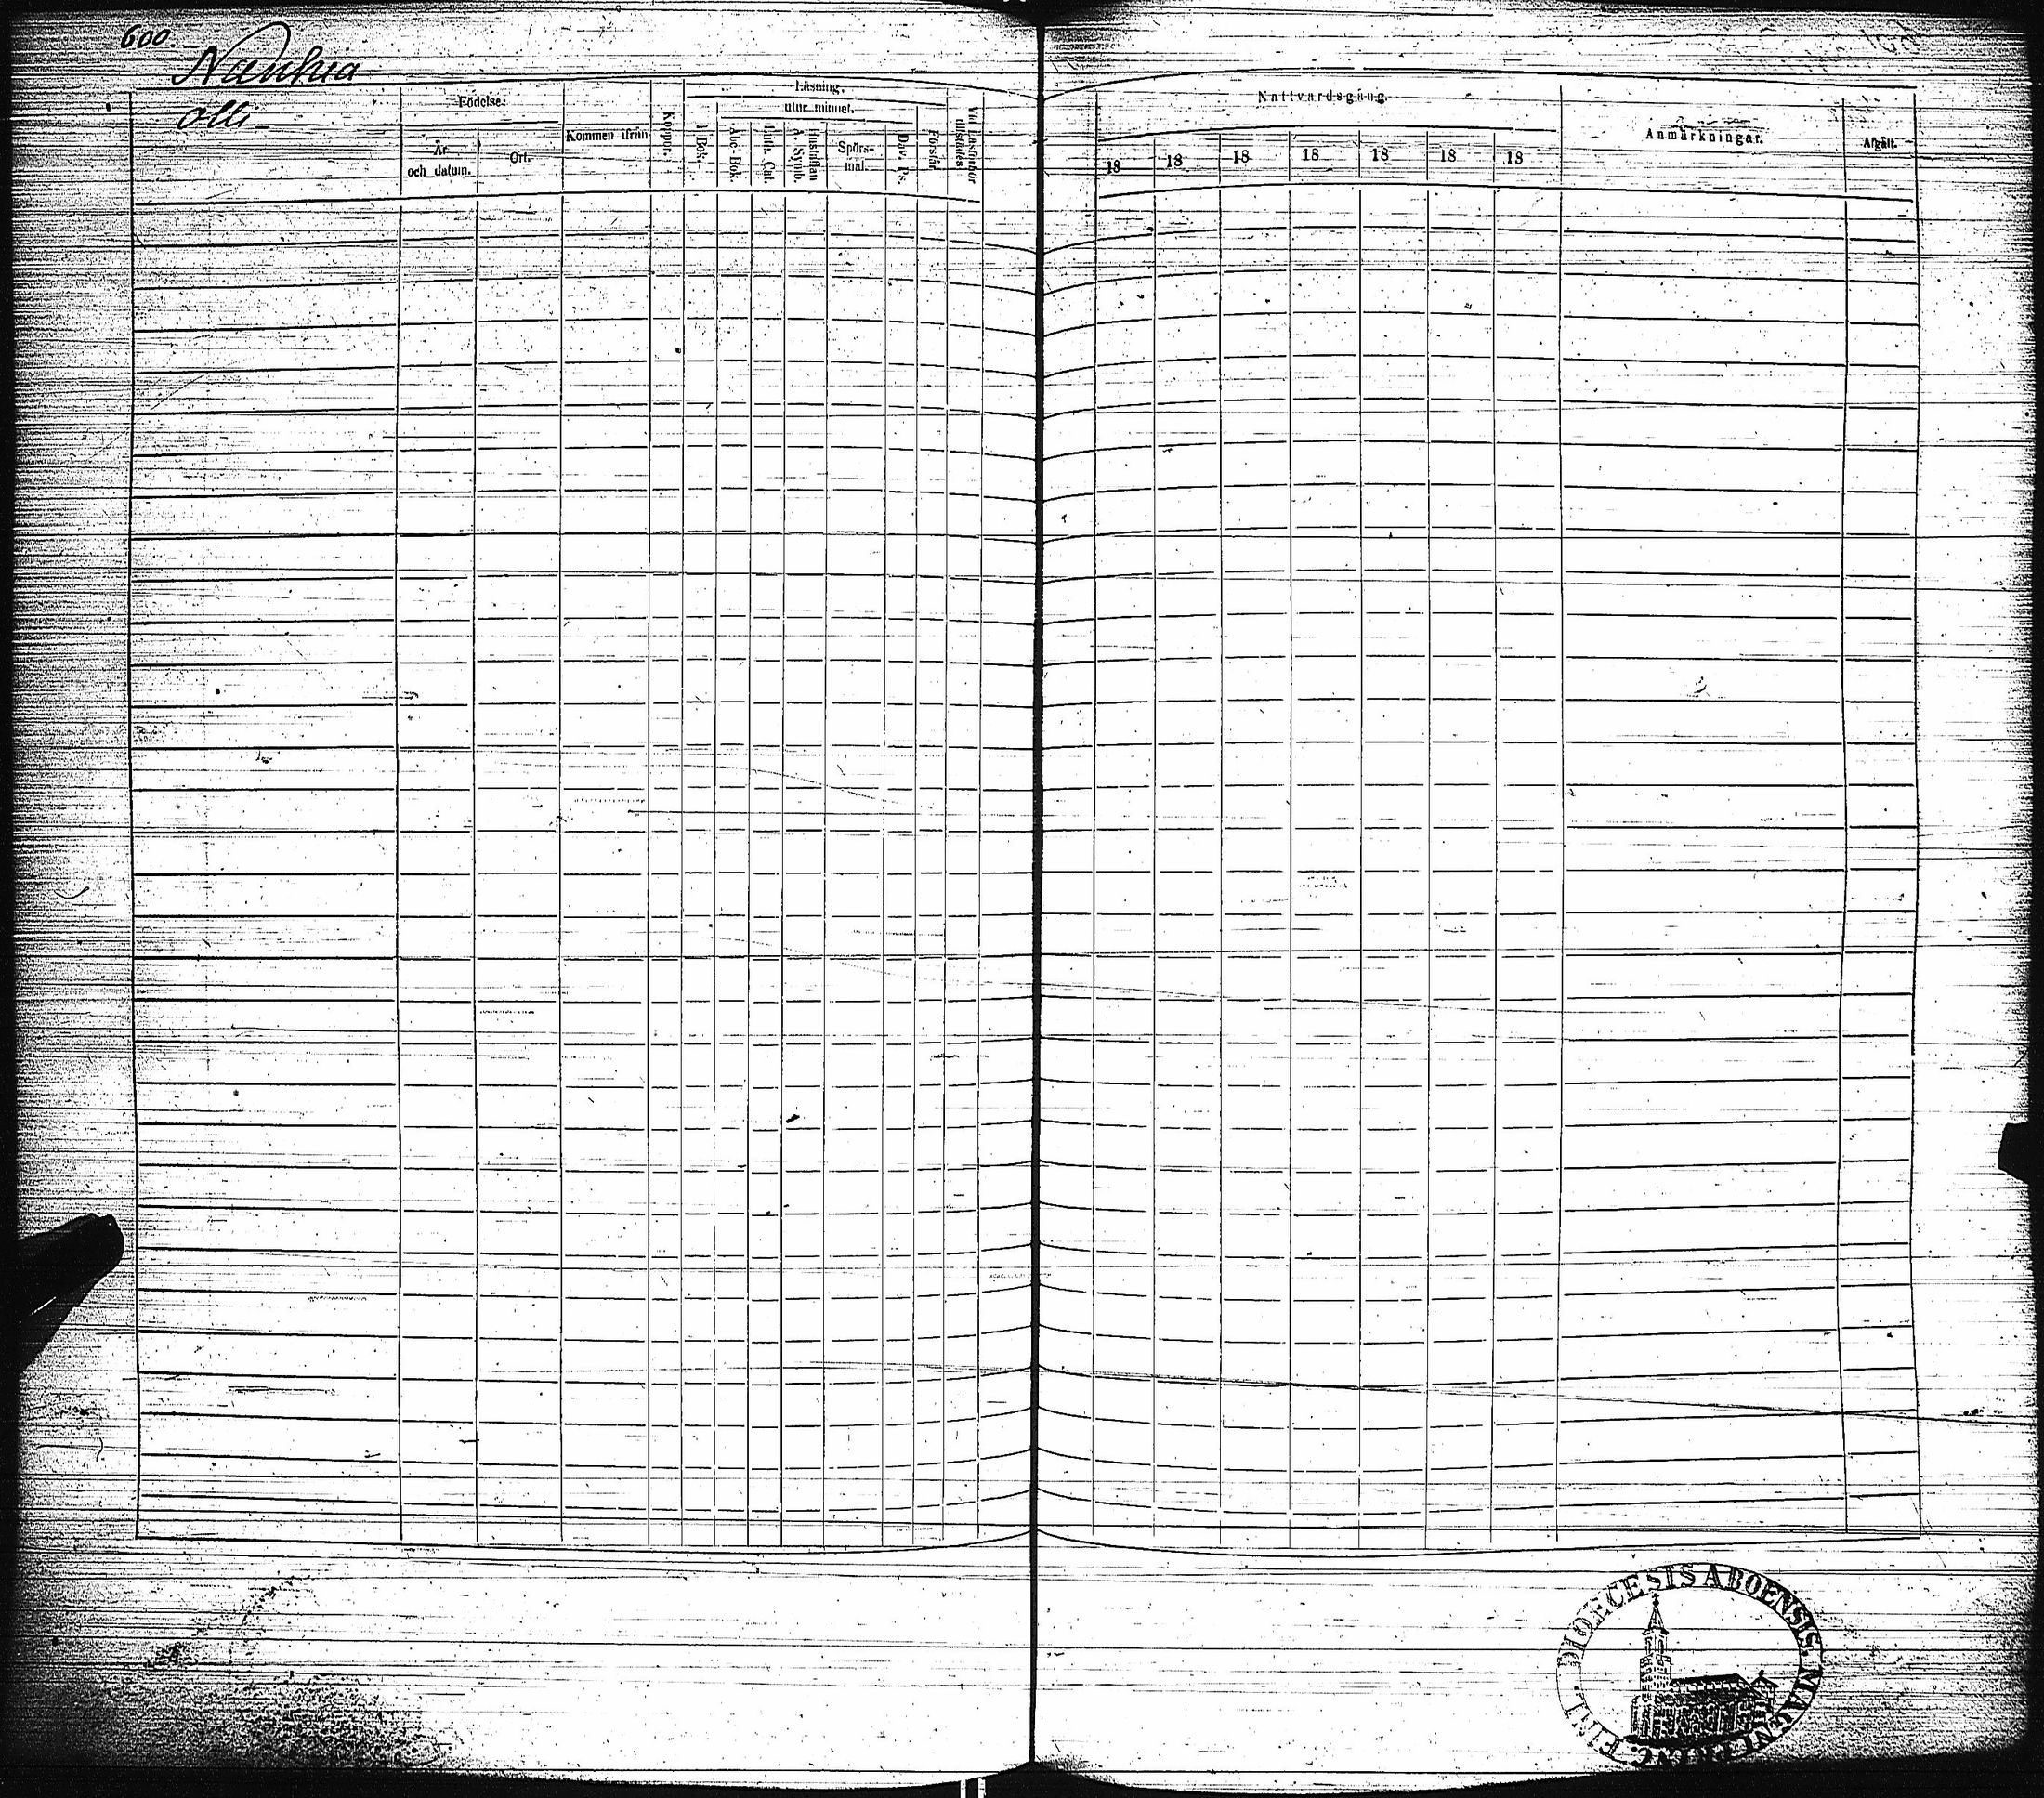 600.
Nanhia
Olli
Födelse:
År
och datum.
Ort.
Kommen ifrån
Koppor.
Läsning,
utur minnet.
I Bok.
Abc-Bok.
Luth. Cat.
Hustaflan
A. Symb.
Spörs-
mål.
Dav. Ps.
Förstår
Vid Läsförhör
tillstädes
Nattvardsgång.
18 18 18 18 18 18 18
Anmärkningar.
Afgått.
DIOECESIS ABOENSIS. MAGNI PRINC. FINL.